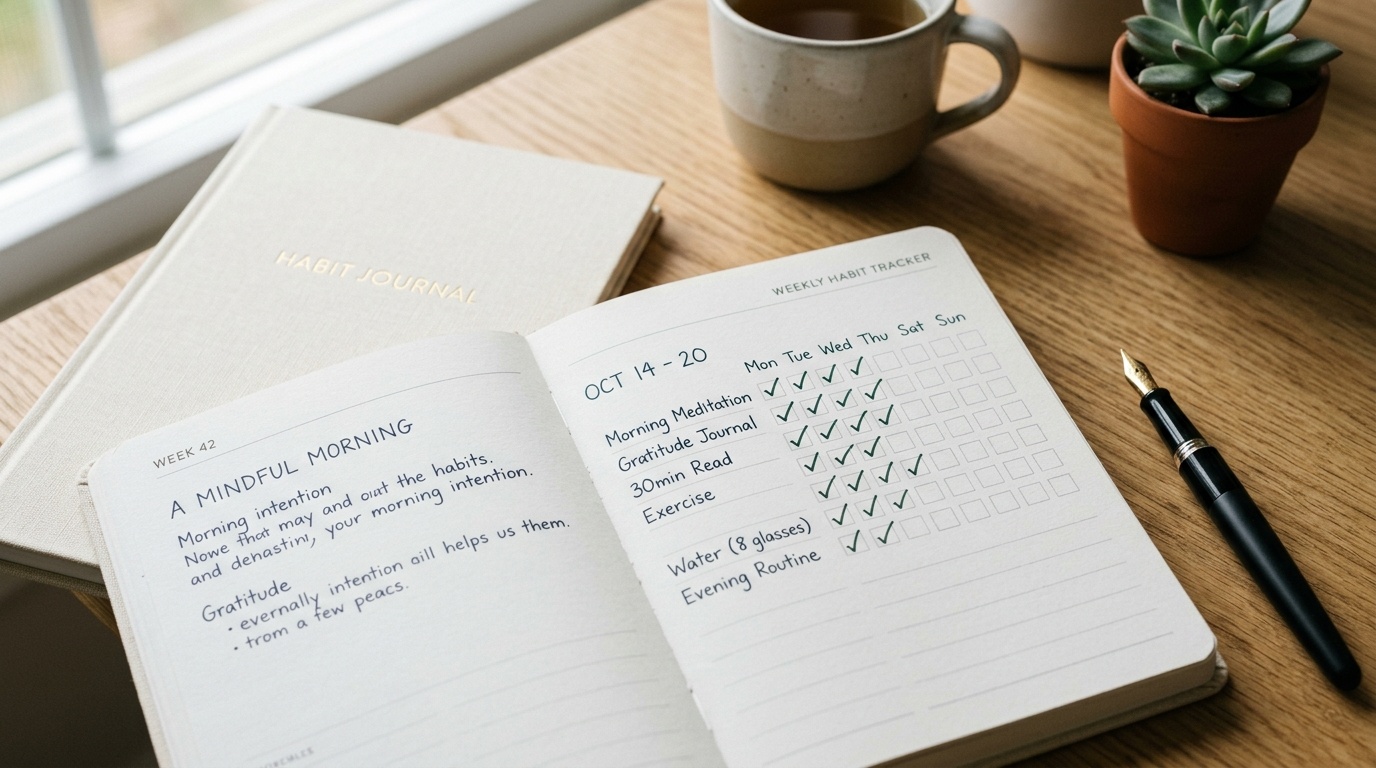 HABIT JOURNAL
WEEK 42
A MINDFUL MORNING
Morning intention
Nowe that may and out the habits.
and denastini, your morning intention.
Gratitude
• evernally intention aill helps us them.
• trom a few peacs.
WEEKLY HABIT TRACKER
OCT 14 - 20
Mon Tue Wed Thu Sat Sun
Morning Meditation
Gratitude Journal
30min Read
Exercise
Water (8 glasses)
Evening Routine